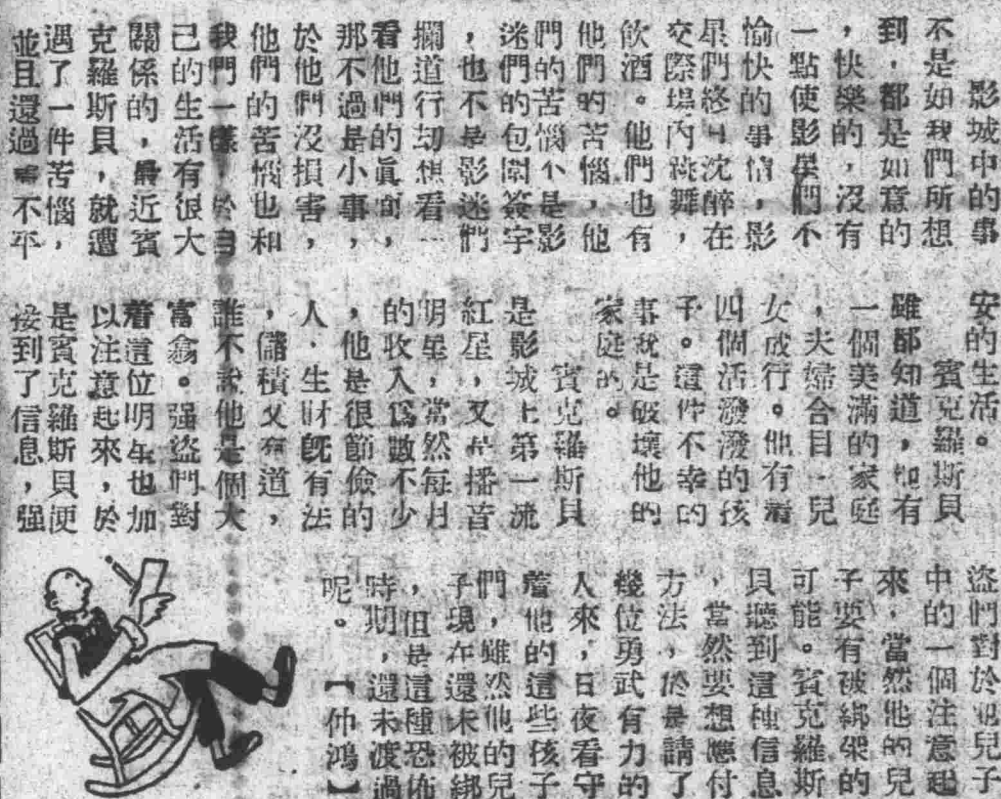 影城中的事
不是如我們所想
到，都是如意的
，快樂的，沒有
一點使影星們不
愉快的事情，影
星們終日沈醉在
交際場內跳舞，
飲酒。他們也有
他們的苦惱，他
們的苦惱不是影
迷們的包圍簽字
，也不是影迷們
攔道行刧想看一
看他們的眞面，
那不過是小事，
於他們沒損害，
他們的苦惱也和
我們一樣，於自
己的生活有很大
關係的，最近賓
克羅斯貝，就遭
遇了一件苦惱，
並且還過 不平
安的生活。
賓克羅斯貝
雖都知道，他有
一個美滿的家庭
，夫婦合目，兒
女成行。他有着
四個活潑潑的孩
子。這件不幸的
事就是破壞他的
家庭的。
賓克羅斯貝
是影城上第一流
紅星，又是播音
明星，當然每月
的收入爲數不少
，他是很節儉的
人，生財旣有法
，儲積又有道，
誰不說他是個大
富翁。强盜們對
着這位明星也加
以注意起來，於
是賓克羅斯貝便
接到了信息，强
盜們對於他兒子
中的一個注意起
來，當然他的兒
子要有被綁架的
可能。賓克羅斯
貝聽到這種信息
，當然要想應付
方法，於是請了
幾位勇武有力的
人來，日夜看守
着他的這些孩子
們，雖然他的兒
子現在還未被綁
，但是這種恐怖
時期，還未渡過
呢。【仲鴻】